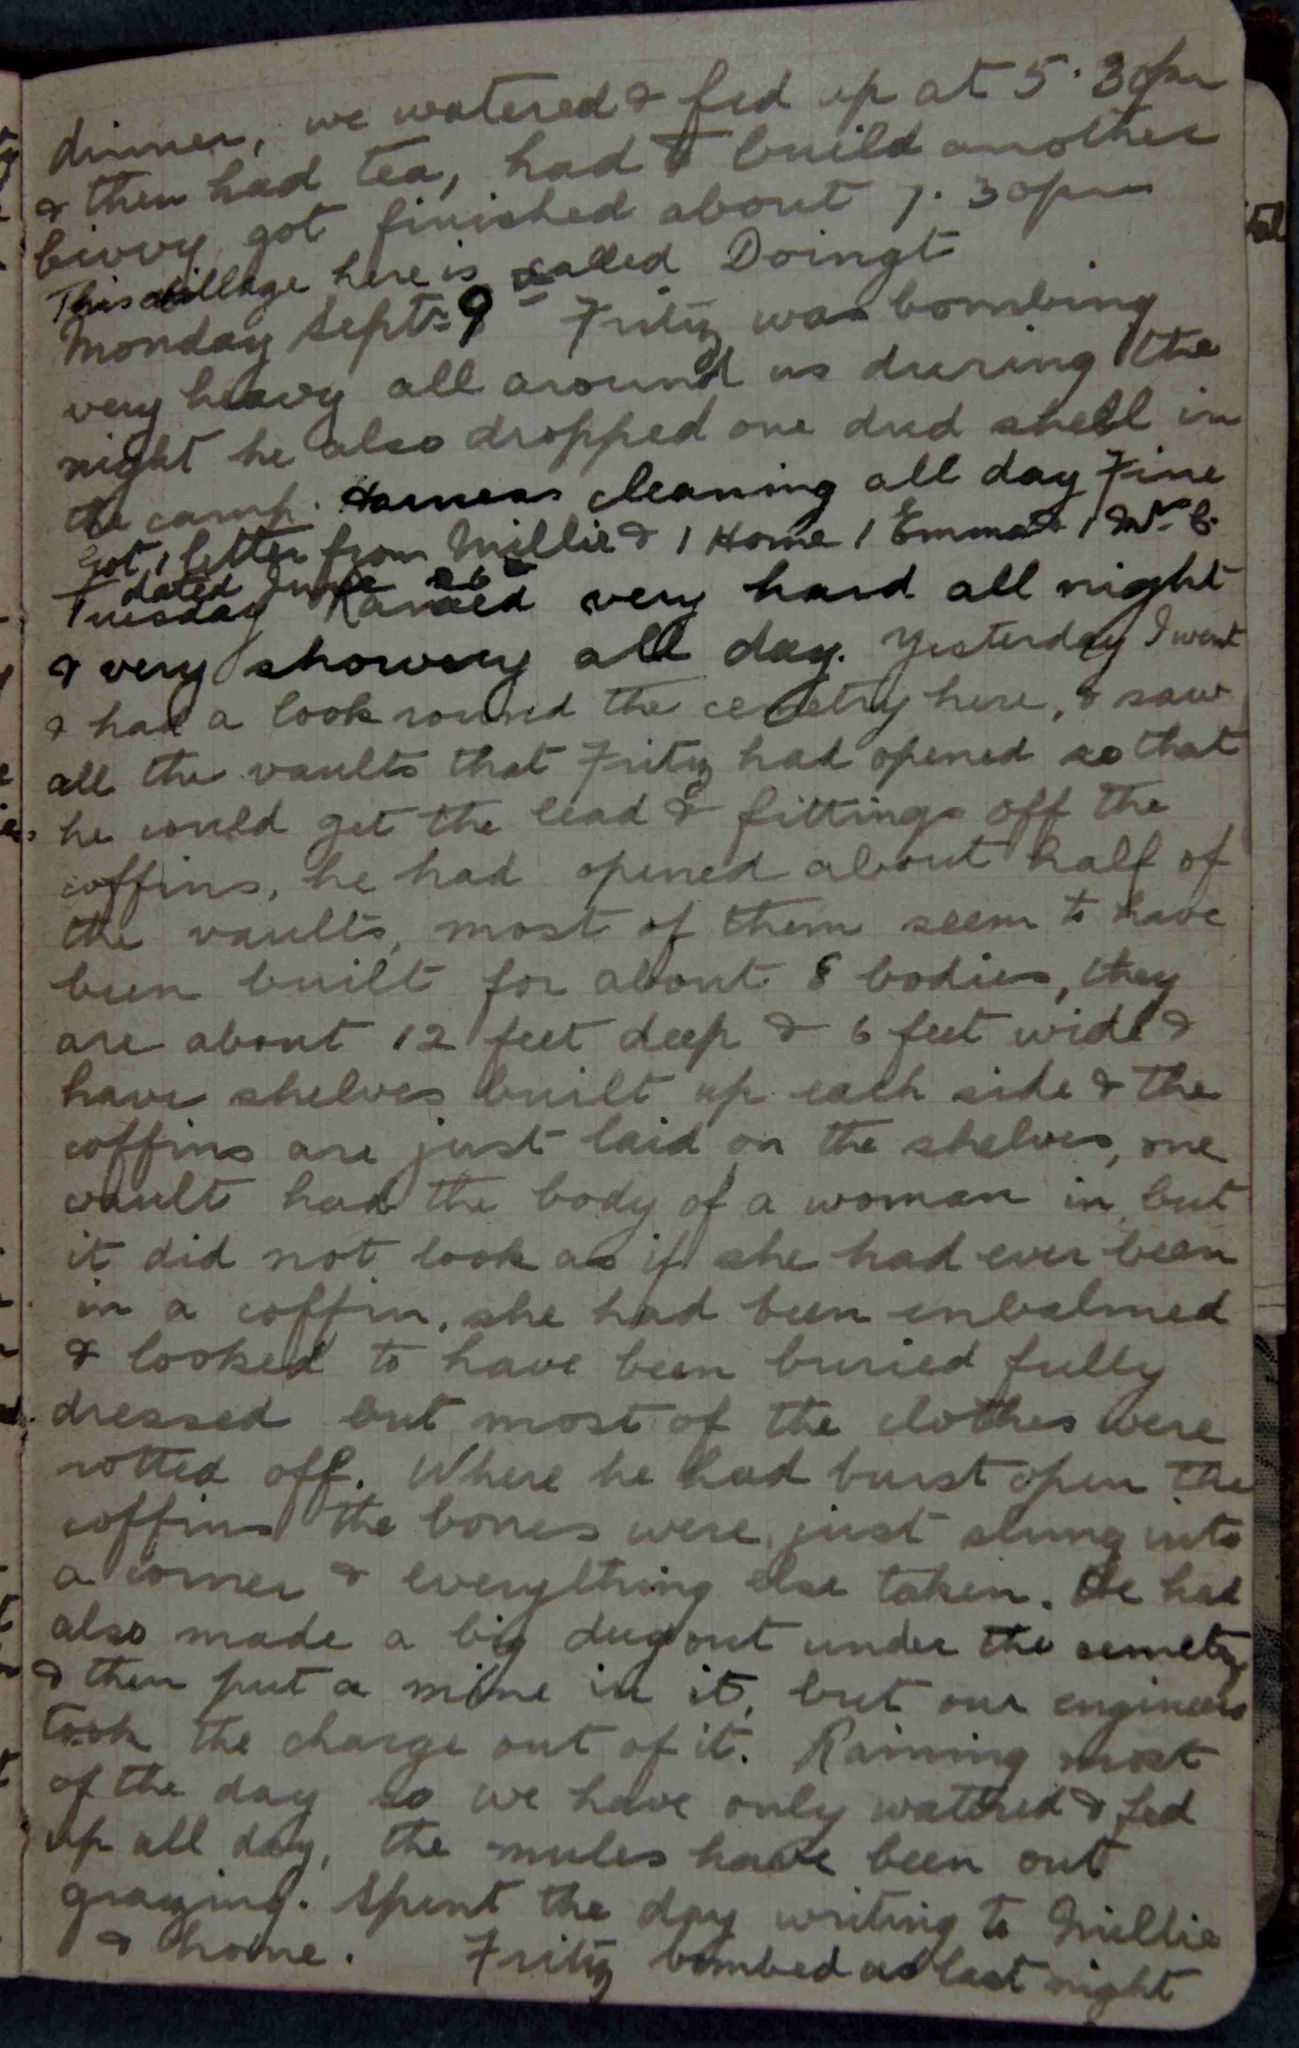 dinner, we watered & fed up at 5.30pm
& then had tea, had to build another
bivvy got finished about 7.30pm
This village here is called Doingt
Monday Sept 9th Fritz was bombing
very heavy all around us during the
night he also dropped one dud shell in
the camp. Harness cleaning all day Fine
Got 1 letter from Millie & 1 Home 1 Emma & 1 Mrs C.
dated June 26
Tuesday Rained very hard all night
& very showery all day. Yesterday I went
& had a look round the cemetry here, & saw
all the vaults that Fritz had opened so that
he could get the lead & fittings off the
coffins, he had opened about half of
the vaults, most of them seem to have
been built for about 8 bodies, they
are about 12 feet deep & 6 feet wide &
have shelves built up each side & the
coffins are just laid on the shelves, one
vault had the body of a woman in, but
it did not look as if she had ever been
in a coffin, she had been enbalmed
& looked to have been buried fully
dressed but most of the clothes were
rotted off. Where he had burst open the
coffins the bones were just slung into
a corner & everything else taken. He had
also made a big dugout under the cemetry
& then put a mine in it, but our engineers
took the charge out of it. Raining most
of the day so we have only watered & fed
up all day, the mules have been out
grazing. Spent the day writing to Millie
& home. Fritz bombed as last night